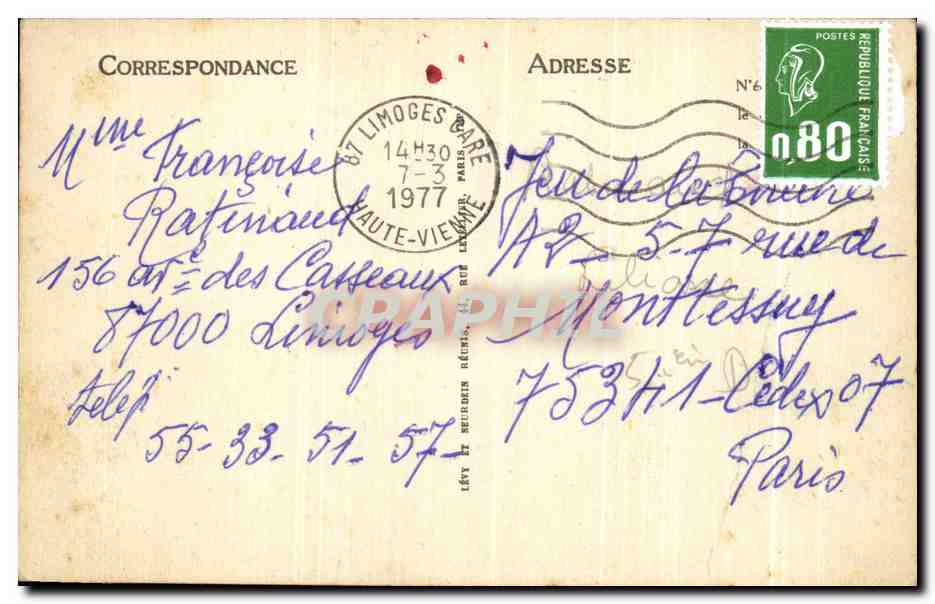 CORRESPONDANCE
Mme Françoise
Ratinaud
156 av. des Casseaux
87000 Limoges
télép
55-33-51-57-
87 LIMOGES GARE
14H30
7-3
1977
HAUTE-VIENNE
LÉVY ET NEURDEIN RÉUNIS, 44, RUE LETELLIER, PARIS
ADRESSE
N°6
le
la
POSTES
RÉPUBLIQUE FRANÇAISE
0,80
Jeu de la
A2 - 5-7 rue de
Monttessuy
75341 - Cedex 07
Paris
CRAPHIL